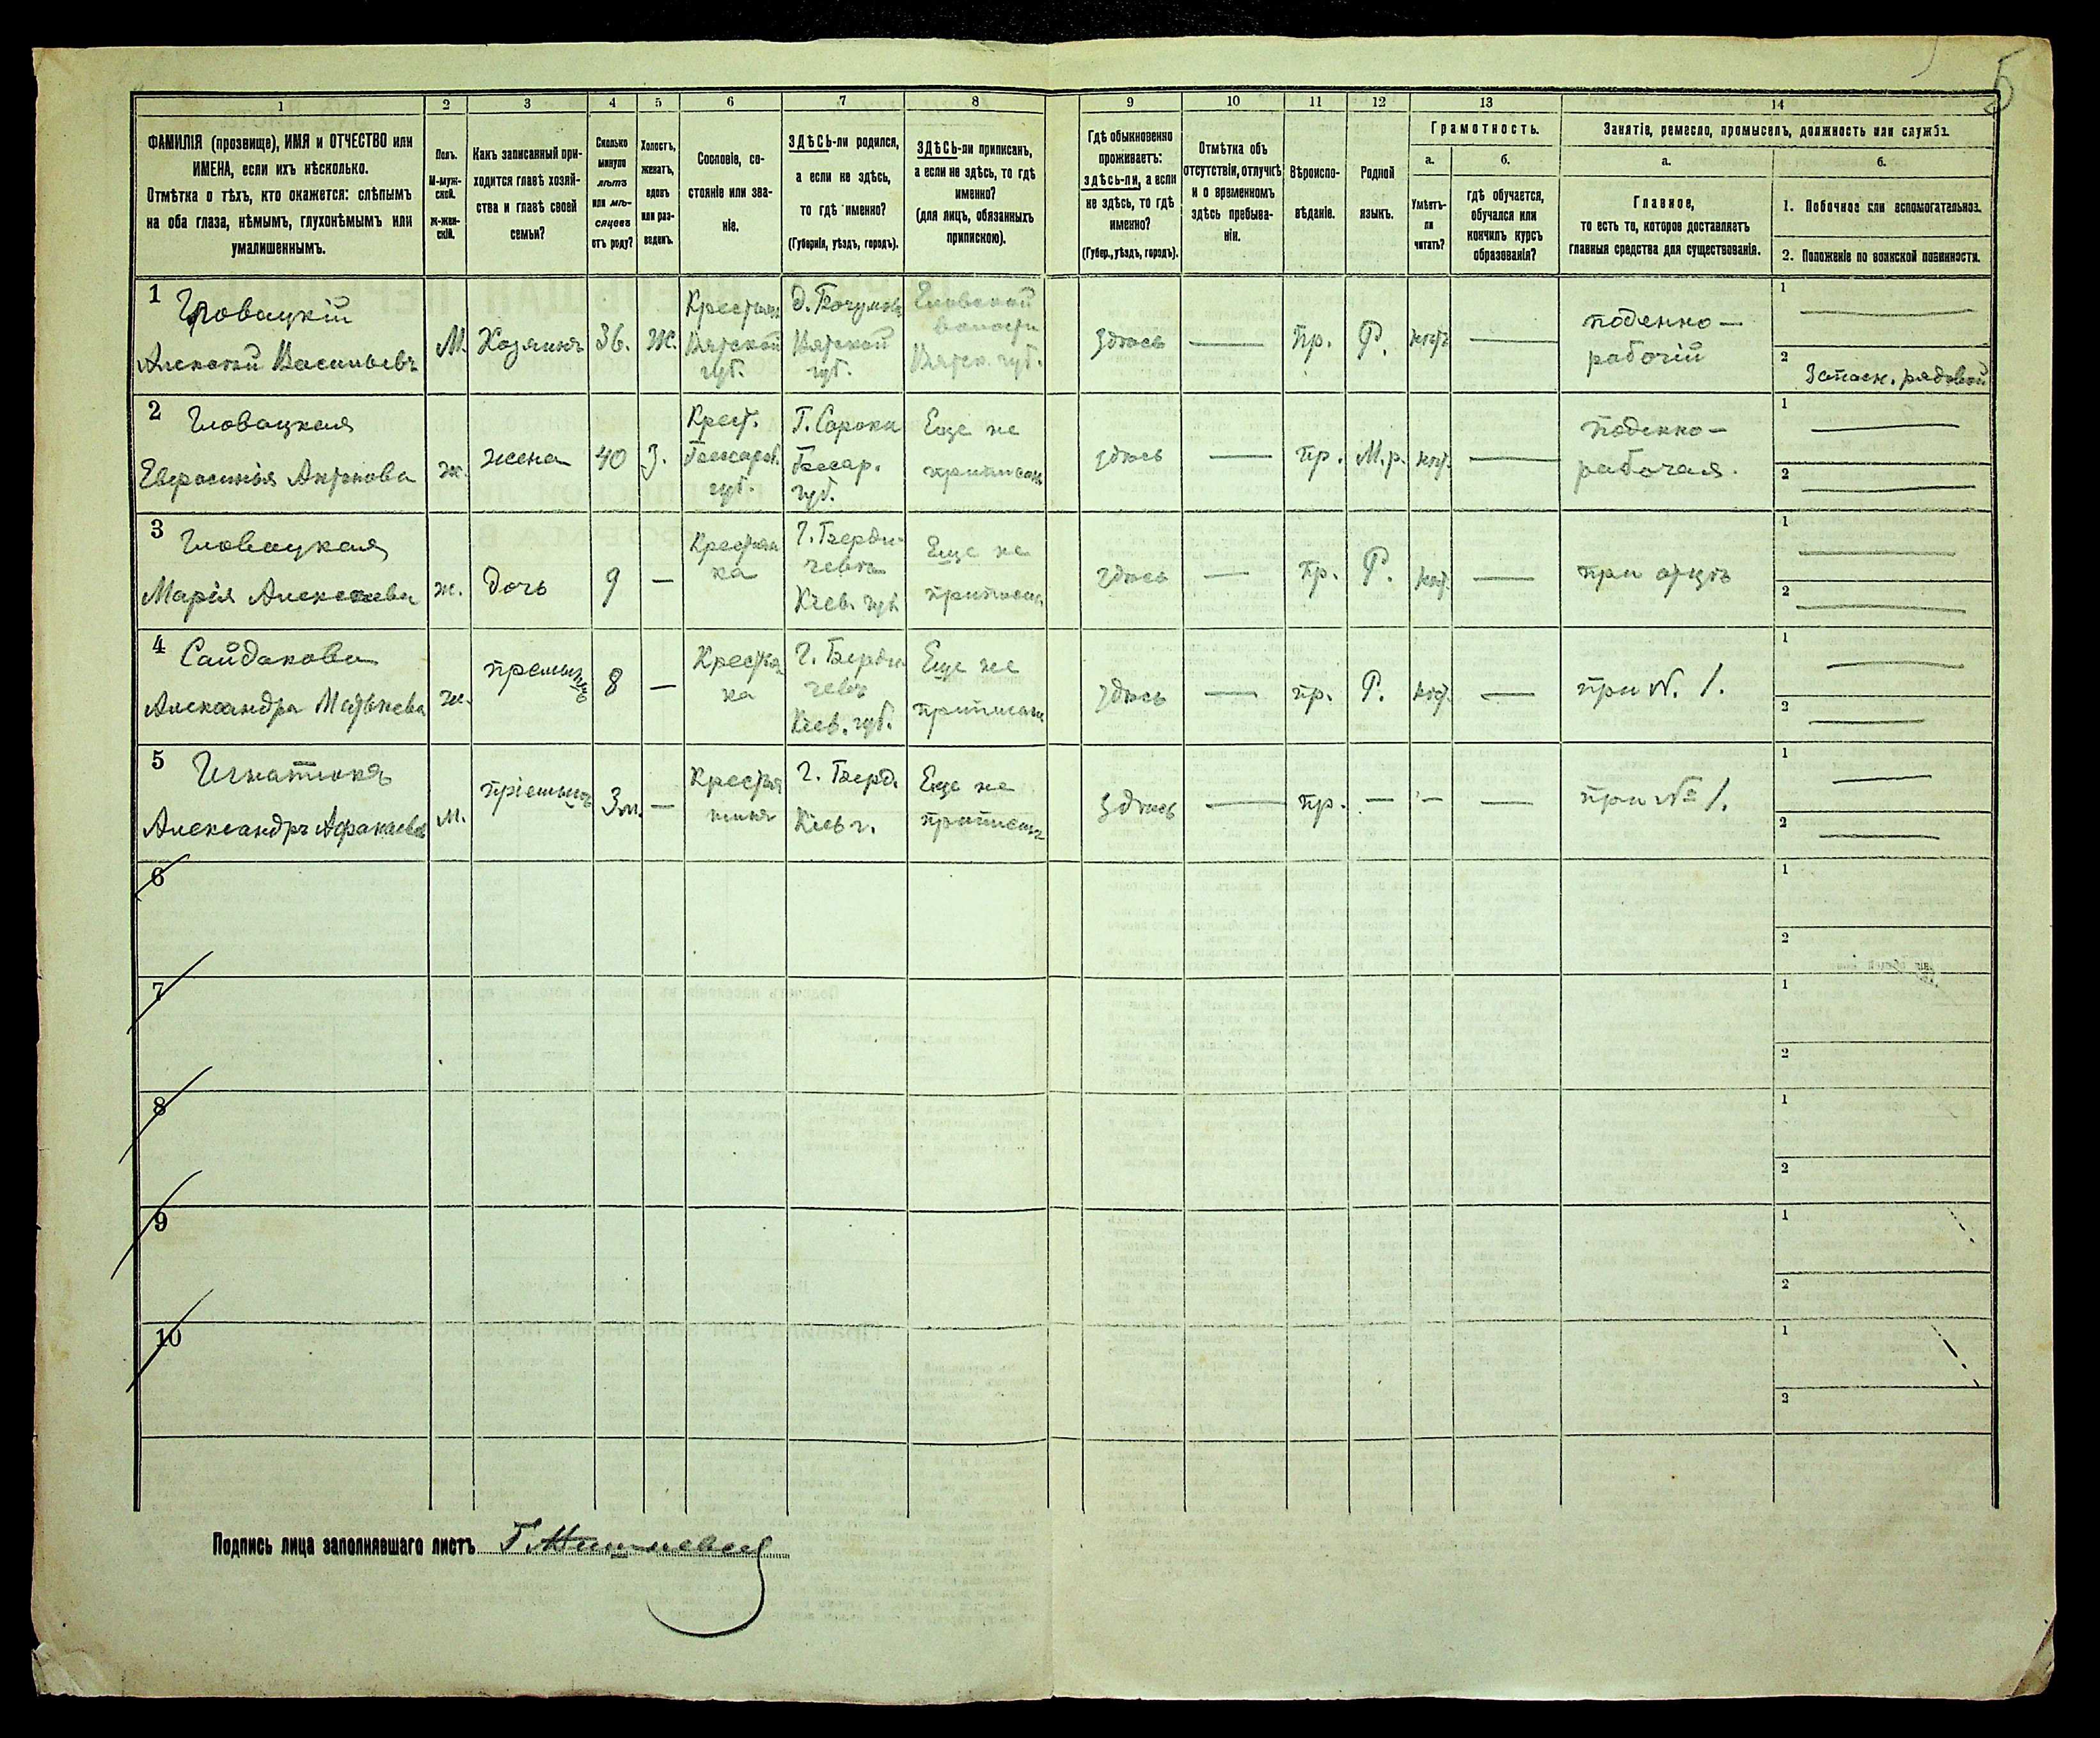 5
1 2 3 4 5 6 7 8 9 10 11 12 13 14
ФАМИЛІЯ (прозвище), ИМЯ и ОТЧЕСТВО или
ИМЕНА, если ихъ нѣсколько.
Отмѣтка о тѣхъ, кто окажется: слѣпымъ
на оба глаза, нѣмымъ, глухонѣмымъ или
умалишеннымъ.
Полъ.
М-муж-
ской.
ж-жен-
скій.
Какъ записанный при-
ходится главѣ хозяй-
ства и главѣ своей
семьи?
Сколько
минуло
лѣтъ
или мѣ-
сяцевъ
отъ роду?
Холостъ,
женатъ,
вдовъ
или раз-
веденъ.
Сословіе, со-
стояніе или зва-
ніе.
ЗДѢСЬ-ли родился,
а если не здѣсь,
то гдѣ именно?
(Губернія, уѣздъ, городъ).
ЗДѢСЬ-ли приписанъ,
а если не здѣсь, то гдѣ
именно?
(для лицъ, обязанныхъ
припискою).
Гдѣ обыкновенно
проживаетъ:
здѣсь-ли, а если
не здѣсь, то гдѣ
именно?
(Губер., уѣздъ, городъ).
Отмѣтка объ
отсутствіи, отлучкѣ
и о временномъ
здѣсь пребыва-
ніи.
Вѣроиспо-
вѣданіе.
Родной
языкъ.
Грамотность.
а.
Умѣетъ-
ли
читать?
б.
гдѣ обучается,
обучался или
кончилъ курсъ
образованія?
Занятіе, ремесло, промыселъ, должность или служба.
а.
Главное,
то есть то, которое доставляетъ
главныя средства для существованія.
б.
1. Побочное или вспомогательное.
2. Положеніе по воинской повинности.
1 Гловацкій
Алексѣй Васильевъ
М.
Хозяинъ
36.
Ж.
Крестьян
Вятской
губ.
Вятской
губ.
волости
Вятск. губ.
здѣсь
—
пр.
Р.
нѣт
—
поденно-
рабочій
1 —
2 Запасн. рядовой
2 Гловацкая
Евфросинія Антонова
ж.
жена
40
З.
Крест.
Бессараб.
губ.
Г. Сороки
Бессар.
губ.
Еще не
приписан
здѣсь
—
пр.
М.р.
нѣт.
—
поденно-
рабочая.
1 —
2 —
3 Гловацкая
Марія Алексѣева
ж.
дочь
9
—
Крестьян
ка
Г. Берди-
чевъ
Кіев. губ
Еще не
приписан.
здѣсь
—
пр.
Р.
нѣт.
—
при отцѣ
1 —
2 —
4 Сайдакова
Александра Матвѣева
ж.
8
—
Крестья
ка
Г. Берди
чевъ
Кіев. губ.
Еще не
приписан
здѣсь
—
пр.
Р.
нѣт.
—
при N. 1.
1 —
2 —
5 Игнатюкъ
Александръ Афанасьев
м.
пріемышъ
3 м.
—
Крестья
нинъ
Г. Берд.
Кіев г.
Еще не
приписанъ
здѣсь
—
пр.
—
—
—
при № 1.
1 —
2 —
6
1
2
7
1
2
8
1
2
9
1
2
10
1
2
Подпись лица заполнявшаго листъ